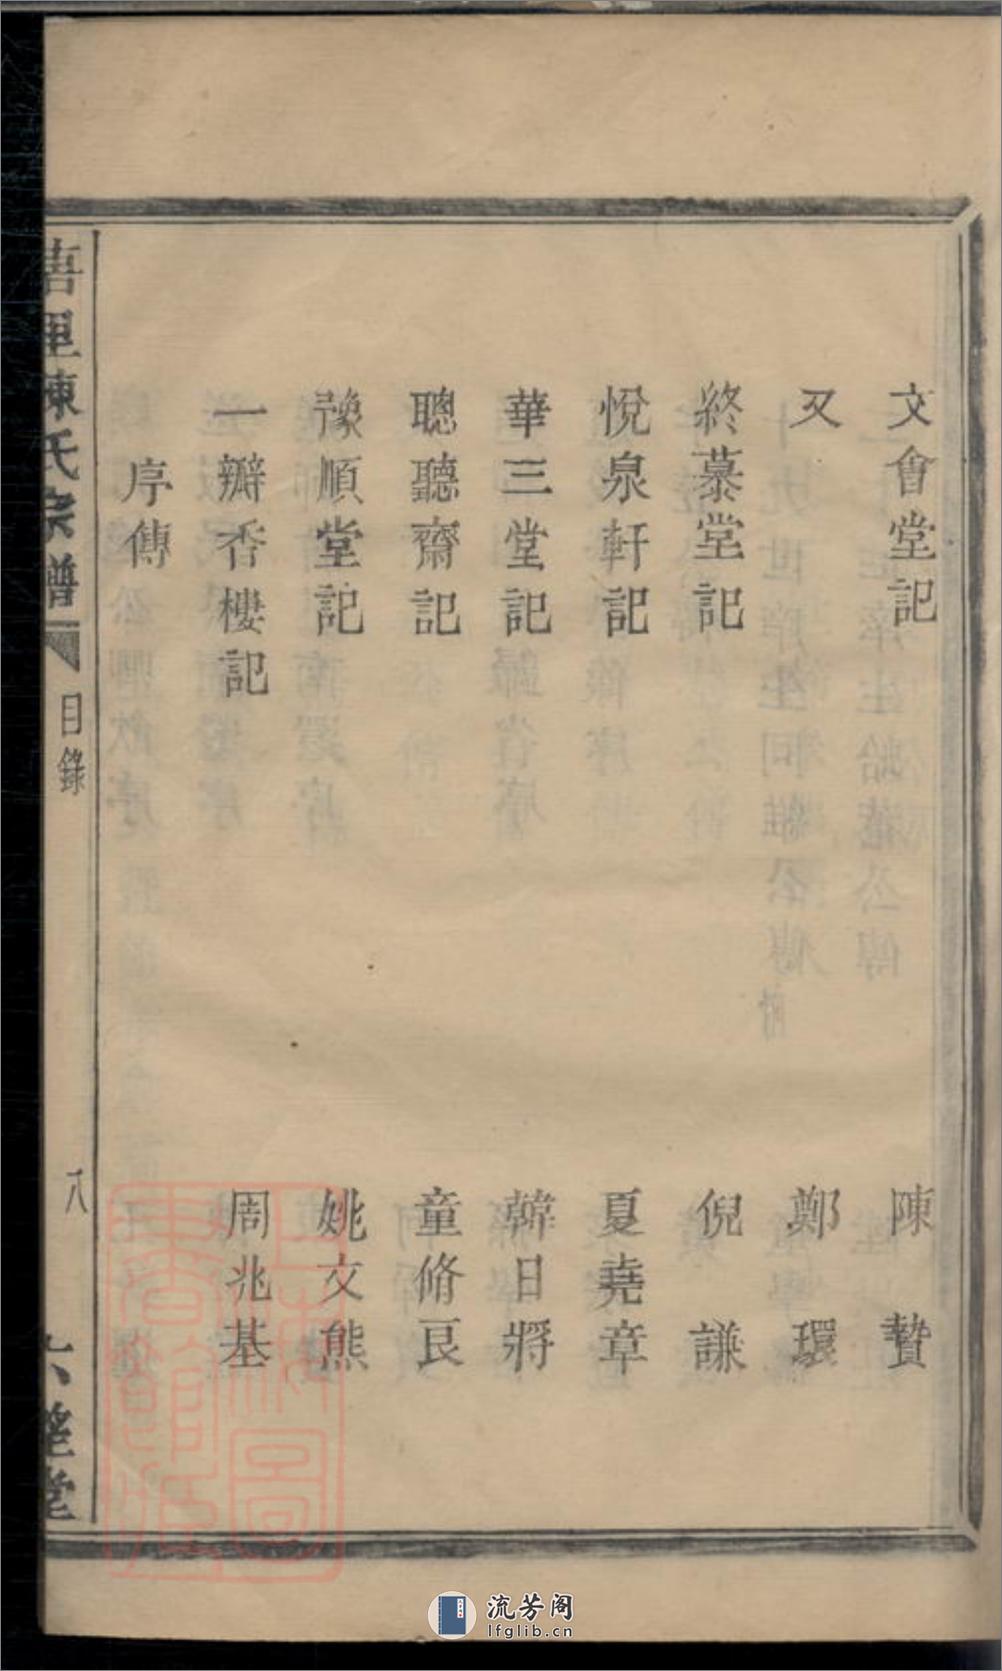 文會堂記 陳贄
又 鄭環
終慕堂記 倪謙
悅泉軒記 夏堯章
華三堂記 韓日將
聰聽齋記 童脩良
豫順堂記 姚文熊
一瓣香樓記 周兆基
序傳
里陳氏宗譜 目錄 八 堂
上海圖書館藏
流芳阁
lfglib.cn